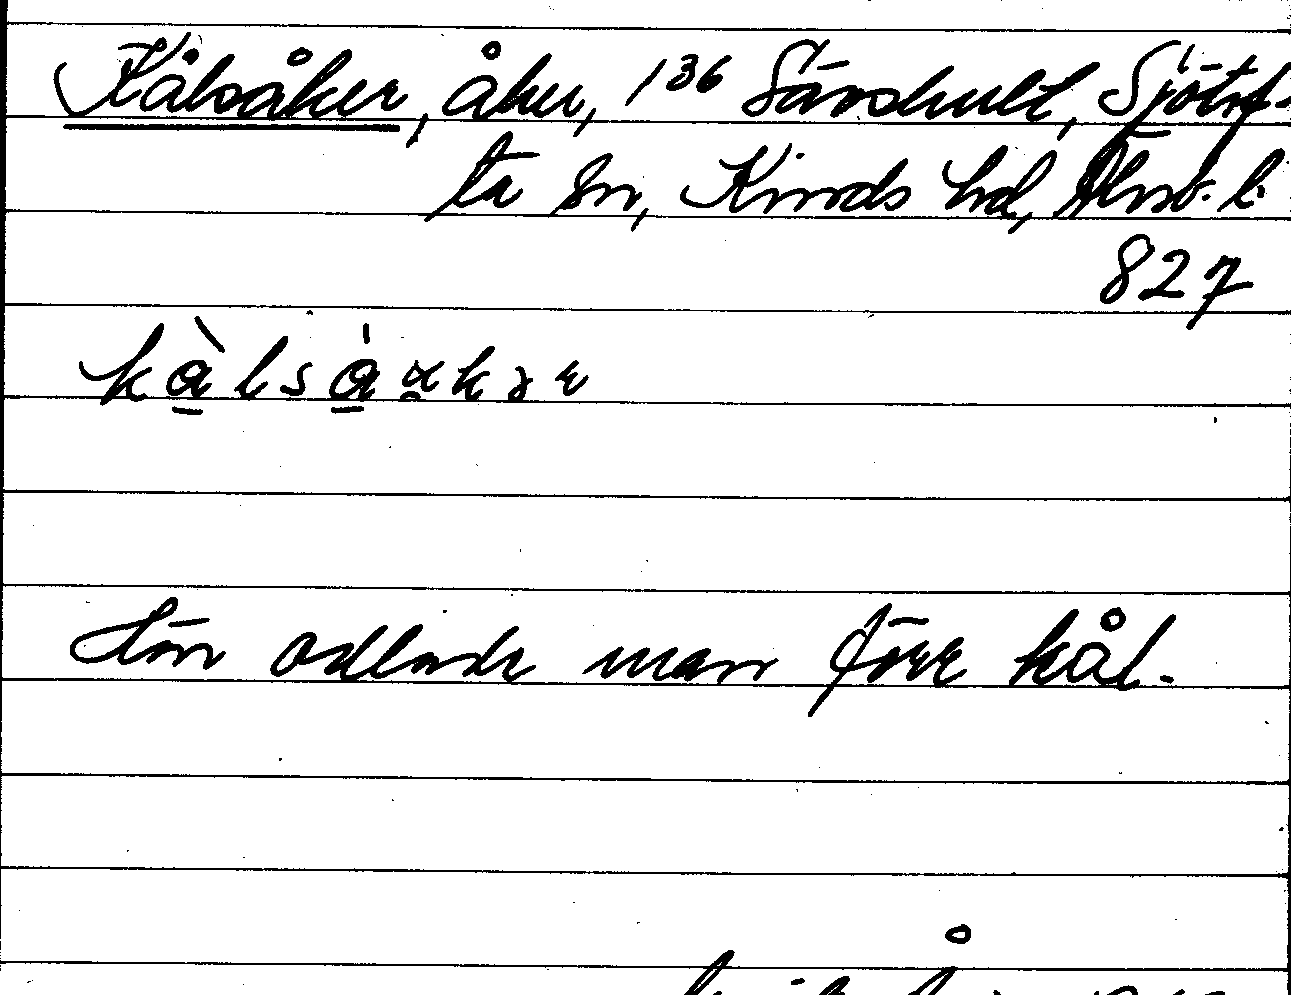 Kålsåker, åker, 136 Sävshult, Sjötof-
ta sn, Kinds hd, Älvsb. l.
827
kàlsåakər
Här odlade man förr kål.